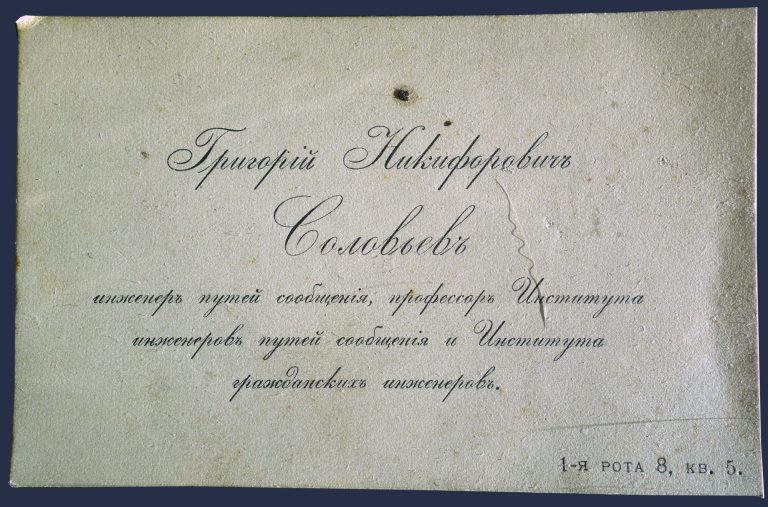 Григорій Никифоровичъ
Соловьевъ
инженеръ путей сообщенія, профессоръ Института
инженеровъ путей сообщенія и Института
гражданскихъ инженеровъ.
1-я рота 8, кв. 5.